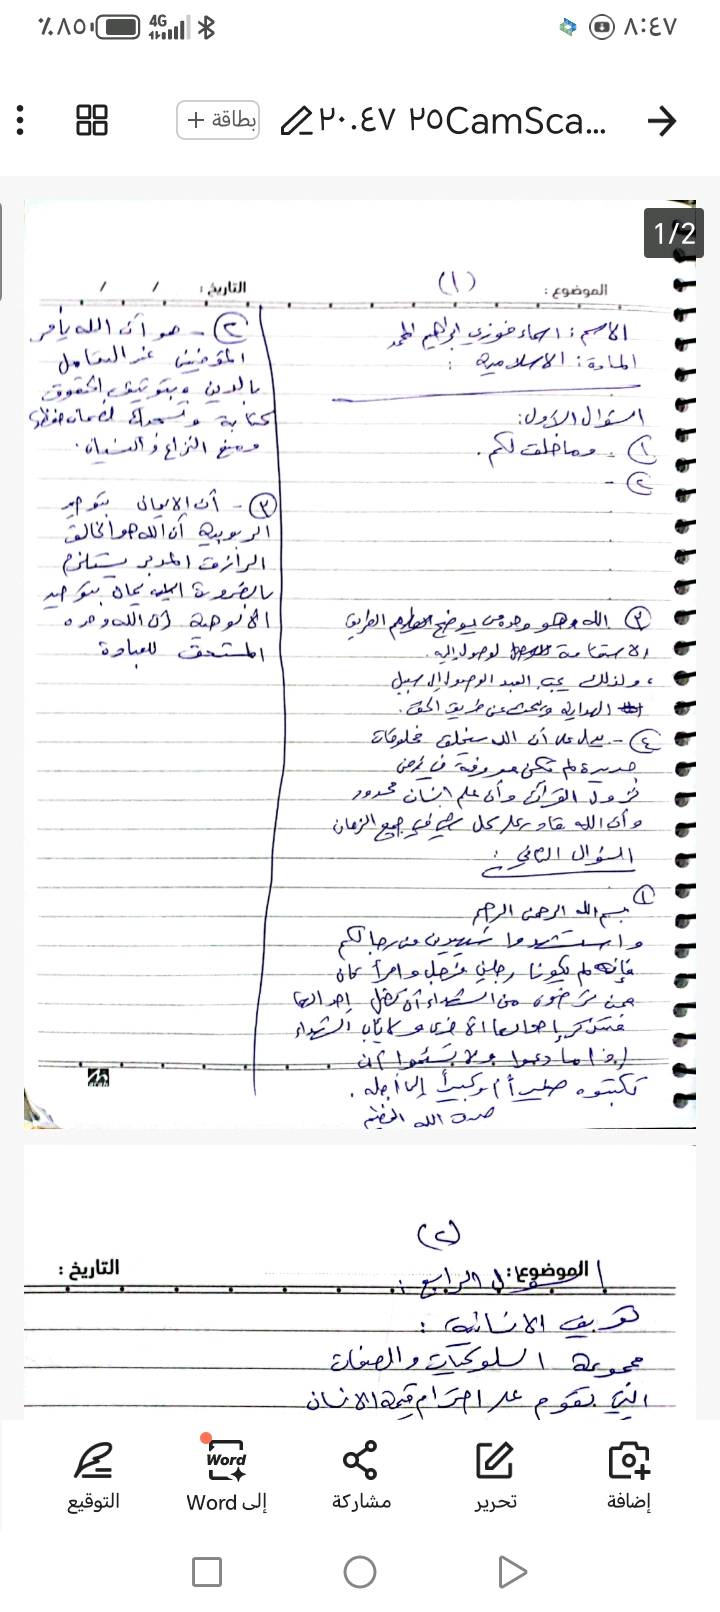 ٨:٤٧
4G
٪٨٥
CamSca... ٢٥ ٢٠.٤٧
بطاقة +
1/2
(١)
الموضوع :
التاريخ : / /
الاسم : اسماء فوزي ابراهيم
المادة : الاسلامية :
السؤال الاول :
١ - وما خلق لكم .
٢ -
٣ الله هو وحده من يوضح الطريق
الاستقامة لوصول إليه .
، ولذلك يجب العبد الوصول إلى سبيل
الهداية عن طريق الحق .
٤ - يدل على أن الله سيخلق مخلوقات
جديدة لم تكن معروفة في زمن
نزول القرآن وأن علم انسان محدود
وأن الله قادر على كل شي في جميع الزمان
السؤال الثاني :
١ بسم الله الرحمن الرحيم
واستشهدوا شهيدين من رجالكم
فإن لم يكونا رجلين فرجل وامرأتان
ممن ترضون من الشهداء أن تضل إحداهما
فتذكر إحداهما الأخرى ولا يأب الشهداء
إذا ما دعوا ولا تسئموا أن
تكتبوه صغيراً أو كبيراً إلى أجله .
صدق الله العظيم
٢ - هو أن الله يأمر
المؤمنين عند التعامل
بالدين وبتوثيق الحقوق
كتابة لضمان حفظها
ومنع النزاع و النسيان .
٣ - أن الايمان بتوحيد
الربوبية أن الله هو الخالق
الرازق المدبر يستلزم
بالضرورة الايمان بتوحيد
الألوهية أن الله وحده
المستحق للعبادة
(٢)
الموضوع :
التاريخ :
السؤال الرابع :
تعريف الانسانية :
مجموعة السلوكيات والصفات
التي تقوم على احترام قيمة الانسان
إضافة
تحرير
مشاركة
Word
إلى Word
التوقيع